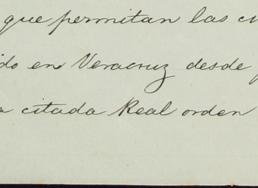 que permitan las
do en Veracruz desde
a citada Real orden